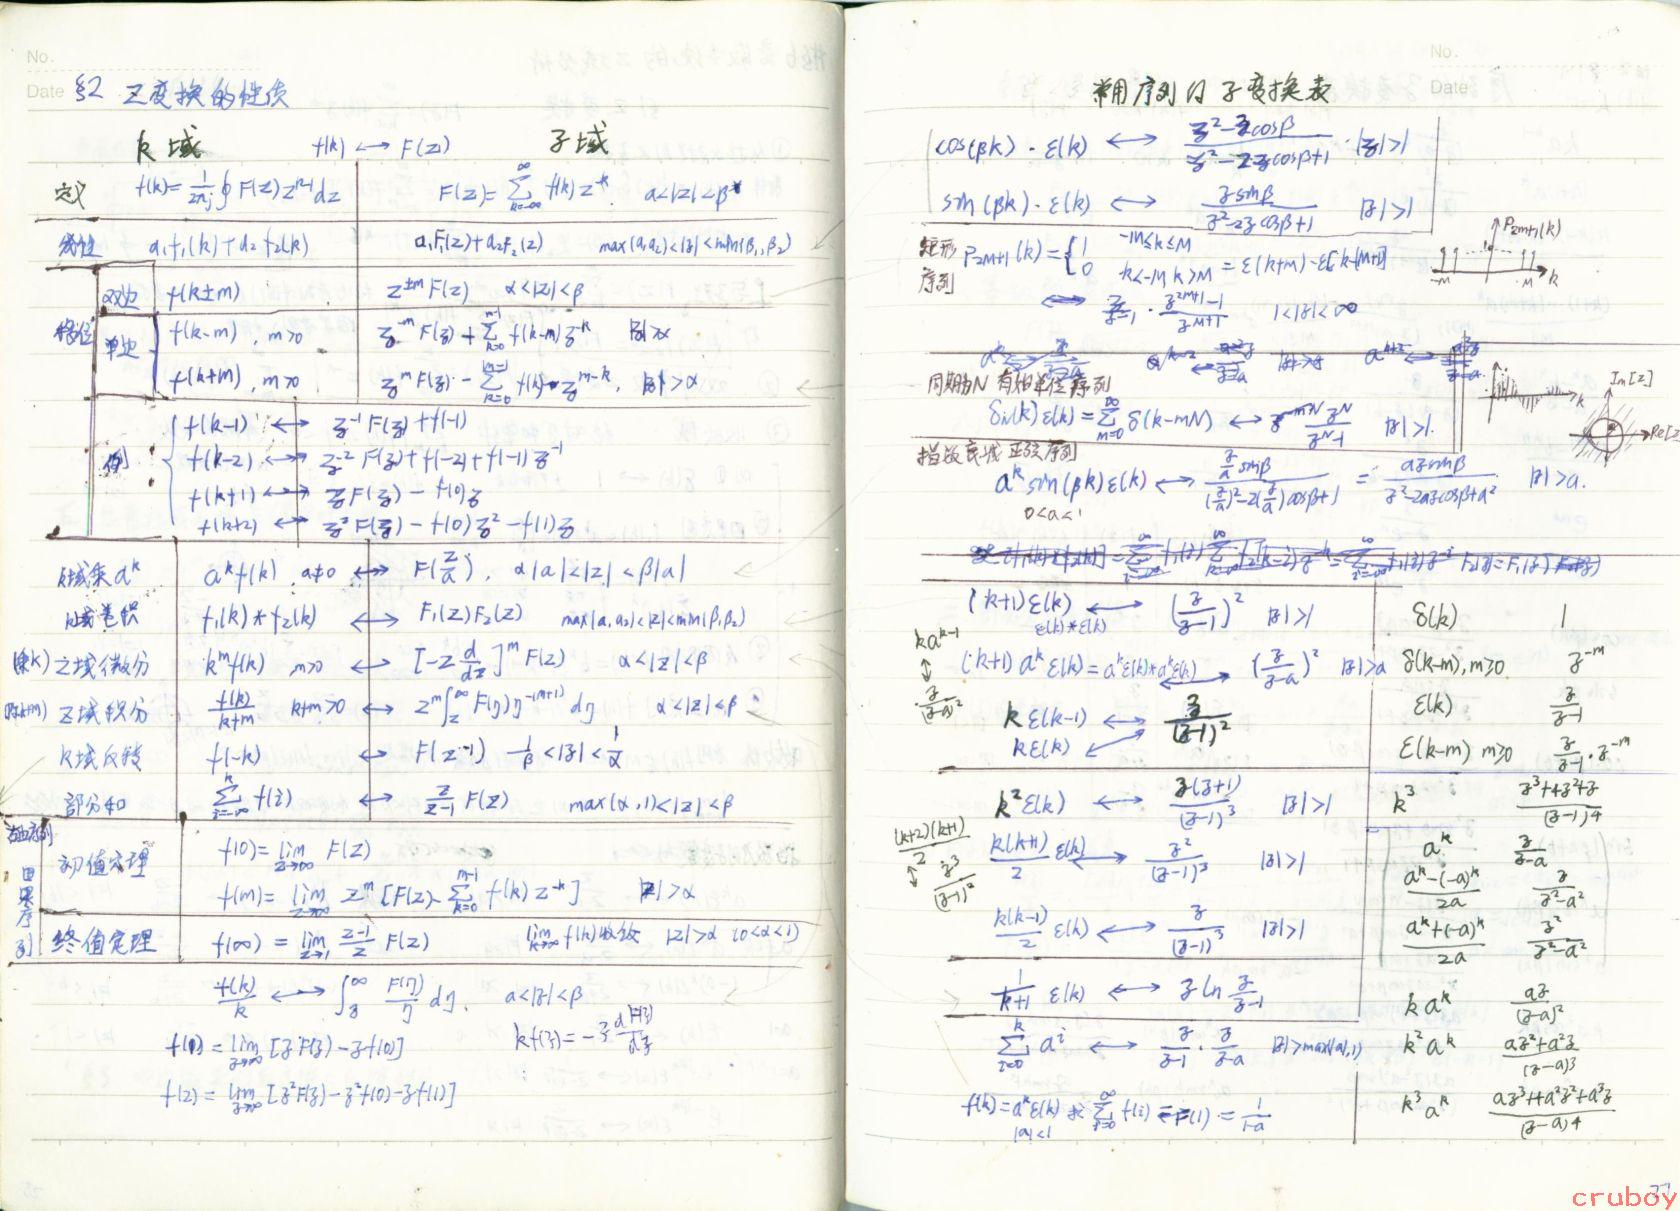 No.
Date §2 Z变换的性质
k域 f(k) ↔ F(z) z域
定义 f(k) = 1/2πj ∮ F(z) z^(k-1) dz F(z) = Σ_{k=-∞}^{∞} f(k) z^-k α<|z|<β
线性 a₁f₁(k)+a₂f₂(k) a₁F₁(z)+a₂F₂(z) max(α₁,α₂)<|z|<min(β₁,β₂)
移位 双边 f(k±m) z^±m F(z) α<|z|<β
单边 f(k-m), m>0 z^-m F(z) + Σ_{k=0}^{m-1} f(k-m) z^-k |z|>α
f(k+m), m>0 z^m F(z) - Σ_{k=0}^{m-1} f(k) z^(m-k), |z|>α
例 f(k-1) ↔ z^-1 F(z)+f(-1)
f(k-2) ↔ z^-2 F(z)+f(-2)+f(-1)z^-1
f(k+1) ↔ zF(z) - f(0)z
f(k+2) ↔ z² F(z) - f(0)z² - f(1)z
k域乘a^k a^k f(k), a≠0 ↔ F(z/a), α|a|<|z|<β|a|
k域卷积 f₁(k)*f₂(k) ↔ F₁(z)F₂(z) max(α₁,α₂)<|z|<min(β₁,β₂)
(乘k) Z域微分 k^m f(k) m>0 ↔ [-z d/dz]^m F(z) α<|z|<β
(除k+m) Z域积分 f(k)/(k+m) k+m>0 ↔ z^m ∫_z^∞ F(η)η^-(m+1) dη α<|z|<β
k域反转 f(-k) ↔ F(z^-1) 1/β<|z|<1/α
部分和 Σ_{i=-∞}^{k} f(i) ↔ z/(z-1) F(z) max(α,1)<|z|<β
因果序列 初值定理 f(0) = lim_{z→∞} F(z)
f(m) = lim_{z→∞} z^m [F(z) - Σ_{k=0}^{m-1} f(k) z^-k] |z|>α
终值定理 f(∞) = lim_{z→1} (z-1)/z F(z) lim_{k→∞} f(k)收敛 |z|>α (0<α<1)
f(k)/k ↔ ∫_z^∞ F(η)/η dη, α<|z|<β
f(1) = lim_{z→∞} [zF(z) - zf(0)] kf(z) = -z dF(z)/dz
f(2) = lim_{z→∞} [z²F(z) - z²f(0) - zf(1)]
No.
Date
常用序列的z变换表
cos(βk)·ε(k) ↔ (z²-zcosβ)/(z²-2zcosβ+1) |z|>1
sin(βk)·ε(k) ↔ zsinβ/(z²-2zcosβ+1) |z|>1
矩形序列 P_{2M+1}(k) = {1 -M≤k≤M
0 k<-M, k>M = ε(k+M)-ε[k-(M+1)]
↔ z/(z-1) · (z^(2M+1)-1)/z^(M+1) 1<|z|<∞
P_{2M+1}(k)
-M M k
周期为N 有始单位序列
δ_N(k)ε(k) = Σ_{m=0}^{∞} δ(k-mN) ↔ z^N/(z^N-1) |z|>1
k Im[z] Re[z]
指数衰减 正弦序列
a^k sin(βk)ε(k) ↔ (z/a sinβ)/((z/a)²-2(z/a)cosβ+1) = azsinβ/(z²-2azcosβ+a²) |z|>a.
0<a<1
(k+1)ε(k) ↔ (z/(z-1))² |z|>1
ε(k)*ε(k)
ka^(k-1) ↔ z/(z-a)²
(k+1)a^k ε(k) = a^k ε(k)*a^k ε(k) ↔ (z/(z-a))² |z|>a
kε(k-1) ↔ z/(z-1)²
kε(k)
k²ε(k) ↔ z(z+1)/(z-1)³ |z|>1
(k+2)(k+1)/2 ↔ z³/(z-1)²
k(k+1)/2 ε(k) ↔ z²/(z-1)³ |z|>1
k(k-1)/2 ε(k) ↔ z/(z-1)³ |z|>1
1/(k+1) ε(k) ↔ z ln z/(z-1)
Σ_{i=0}^{k} a^i ↔ z/(z-1) · z/(z-a) |z|>max(|a|,1)
f(k)=a^k ε(k) Σ_{i=0}^{∞} f(i) = F(1) = 1/(1-a)
|a|<1
δ(k) 1
δ(k-m), m≥0 z^-m
ε(k) z/(z-1)
ε(k-m) m≥0 z/(z-1) · z^-m
k³ (z³+4z²+z)/(z-1)4
a^k z/(z-a)
(a^k-(-a)^k)/2a z/(z²-a²)
(a^k+(-a)^k)/2a z²/(z²-a²)
ka^k az/(z-a)²
k²a^k (az²+a²z)/(z-a)3
k³a^k (az³+4a²z²+a³z)/(z-a)4
cruboy